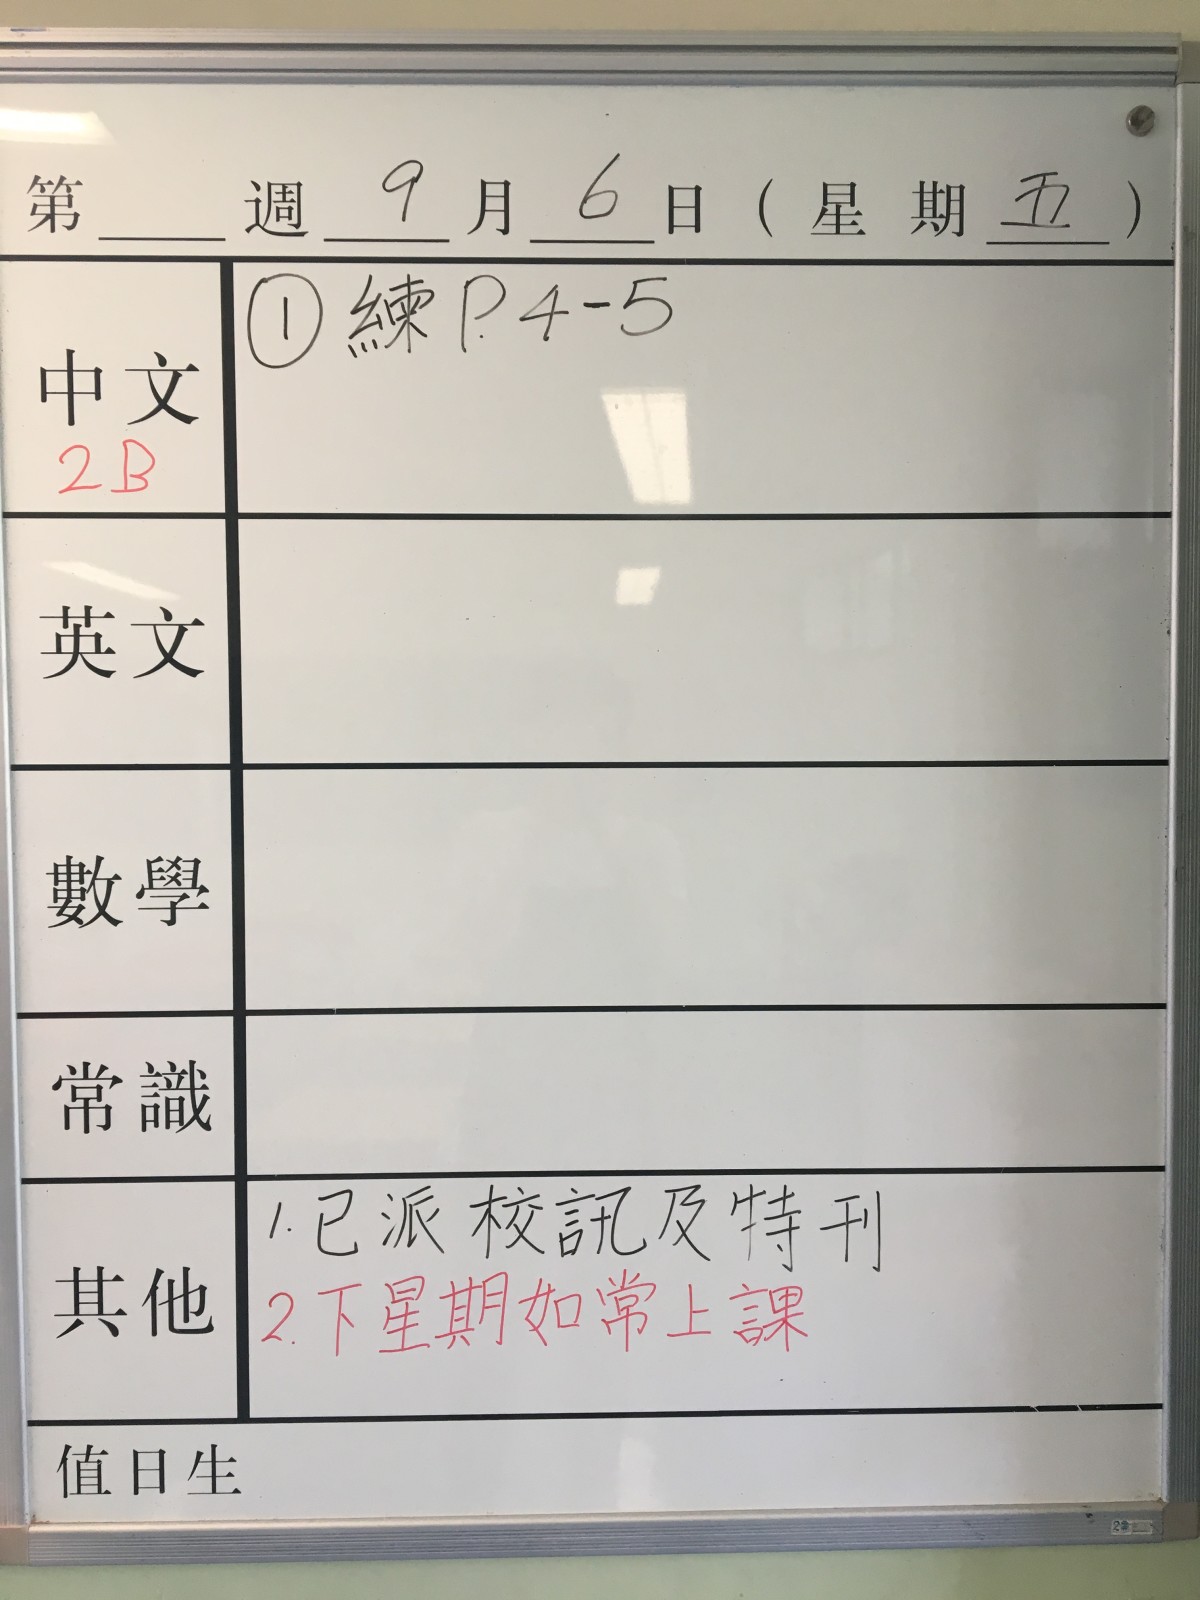 第 週 9 月 6 日 ( 星 期 五 )
中文 ① 練 P.4-5
2B
英文
數學
常識
其他 1. 已派校訊及特刊
2. 下星期如常上課
值日生